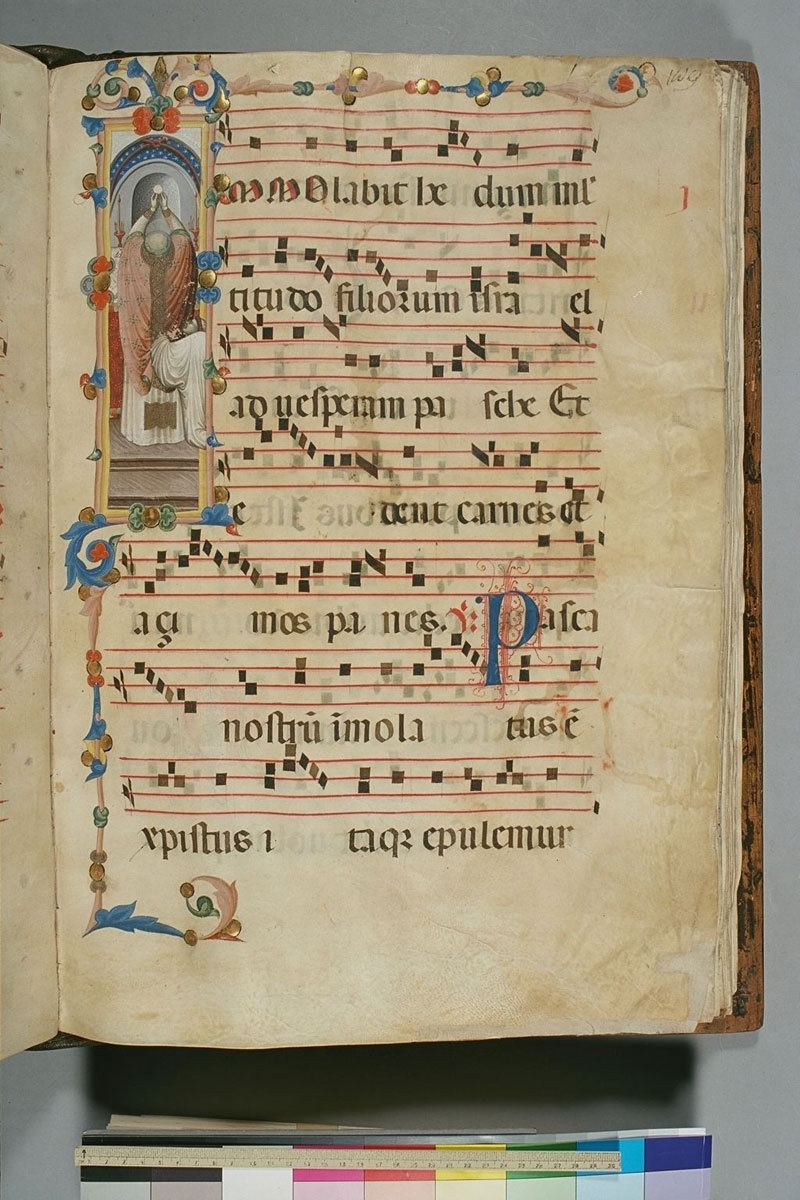 mmolabit he dum mĺ
titudo filiorum isra el
ad uesperam pa sche Et
e dent carnes et
açi mos pa nes. ℣. Pasca
nostrū īmola tus ē
xpistus i taqꝫ epulemur